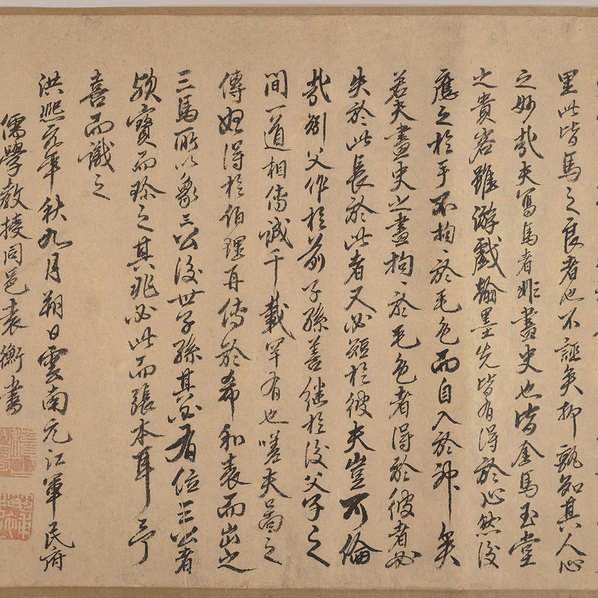 里此皆馬之良者也不誣矣抑孰知其人心
之妙哉夫寫馬者非畫史也皆金馬玉堂
之貴客雖游戲翰墨先皆有得於心然後
應之於手不拘於毛色而自入於神矣
若夫畫史之畫拘〻於毛色者得於彼者必
失於此長於此者又必短於彼夫豈可倫
哉別父作於前子孫善继於後父子之
間一道相傳誠千載罕有也嗟夫圖之
傳始得於伯理再傳於希和表而出之
三馬所以象三公後世子孫其必有位三公者
願寶而珍之其兆必此而張本耳予
喜而識之
洪熙元年秋九月朔日雲南元江軍民府
儒學教授同邑袁衡書